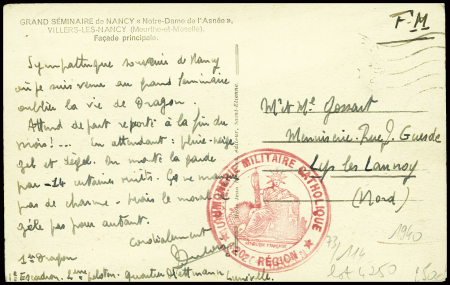 GRAND SÉMINAIRE de NANCY « Notre-Dame de l'Asnée »,
VILLERS-LES-NANCY (Meurthe-et-Moselle).
Façade principale.
F.M
Sympathique souvenir de Nancy
où je suis venu au grand Séminaire
oublier la vie de Dragon.
Attend départ reporté à la fin du
mois!... En attendant : pluie-neige
gel et dégel. On monte la garde
par -14 certaines nuits. Ça ne manque
pas de charme - mais le moral
gèle pas pour autant.
Cordialement
1er Dragon
1er Escadron. 2ème peloton. Quartier Lunéville.
Mr et Me Gossart
Menuiserie. Rue J. Guesde
Lys les Lannoy
(Nord)
AUMONERIE MILITAIRE CATHOLIQUE
20e RÉGION
1940
73/114